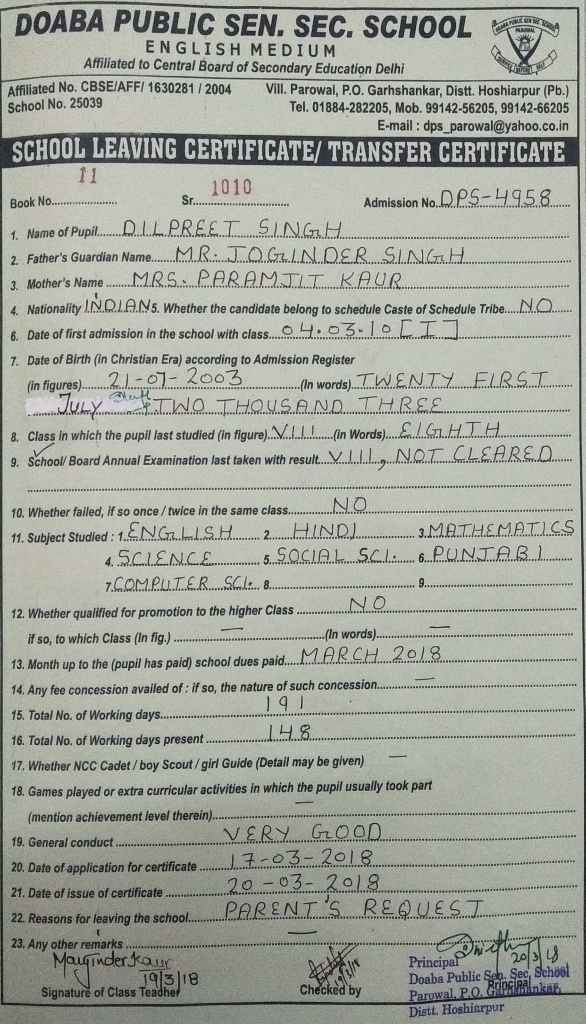 DOABA PUBLIC SEN. SEC. SCHOOL
ENGLISH MEDIUM
Affiliated to Central Board of Secondary Education Delhi
Affiliated No. CBSE/AFF/ 1630281 / 2004 Vill. Parowal, P.O. Garhshankar, Distt. Hoshiarpur (Pb.)
School No. 25039 Tel. 01884-282205, Mob. 99142-56205, 99142-66205
E-mail : dps_parowal@yahoo.co.in
SCHOOL LEAVING CERTIFICATE/ TRANSFER CERTIFICATE
Book No. 11 Sr. 1010 Admission No. DPS-4958
1. Name of Pupil DILPREET SINGH
2. Father's Guardian Name MR. JOGINDER SINGH
3. Mother's Name MRS. PARAMJIT KAUR
4. Nationality INDIAN 5. Whether the candidate belong to schedule Caste of Schedule Tribe NO
6. Date of first admission in the school with class 04.03.10 [I]
7. Date of Birth (in Christian Era) according to Admission Register
(in figures) 21-07-2003 (In words) TWENTY FIRST
JULY TWO THOUSAND THREE
8. Class in which the pupil last studied (in figure) VIII (in Words) EIGHTH
9. School/ Board Annual Examination last taken with result VIII, NOT CLEARED
10. Whether failed, if so once / twice in the same class NO
11. Subject Studied : 1. ENGLISH 2. HINDI 3. MATHEMATICS
4. SCIENCE 5. SOCIAL SCI. 6. PUNJABI
7. COMPUTER SCI. 8. 9.
12. Whether qualified for promotion to the higher Class NO
if so, to which Class (In fig.) — (In words) —
13. Month up to the (pupil has paid) school dues paid MARCH 2018
14. Any fee concession availed of : if so, the nature of such concession —
15. Total No. of Working days 191
16. Total No. of Working days present 148
17. Whether NCC Cadet / boy Scout / girl Guide (Detail may be given) —
18. Games played or extra curricular activities in which the pupil usually took part
(mention achievement level therein) —
19. General conduct VERY GOOD
20. Date of application for certificate 17-03-2018
21. Date of issue of certificate 20-03-2018
22. Reasons for leaving the school PARENT'S REQUEST
23. Any other remarks —
Manjinder Kaur
19/3/18
Signature of Class Teacher
Checked by
20/3/18
Principal
Doaba Public Sen. Sec. School
Principal
Parowal, P.O. Garhshankar,
Distt. Hoshiarpur